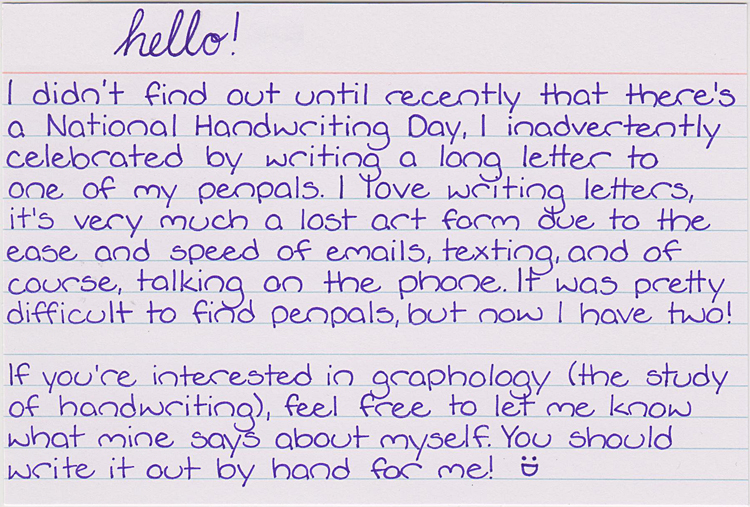 hello!
I didn't find out until recently that there's
a National Handwriting Day, I inadvertently
celebrated by writing a long letter to
one of my penpals. I love writing letters,
it's very much a lost art form due to the
ease and speed of emails, texting, and of
course, talking on the phone. It was pretty
difficult to find penpals, but now I have two!
If you're interested in graphology (the study
of handwriting), feel free to let me know
what mine says about myself. You should
write it out by hand for me! :D